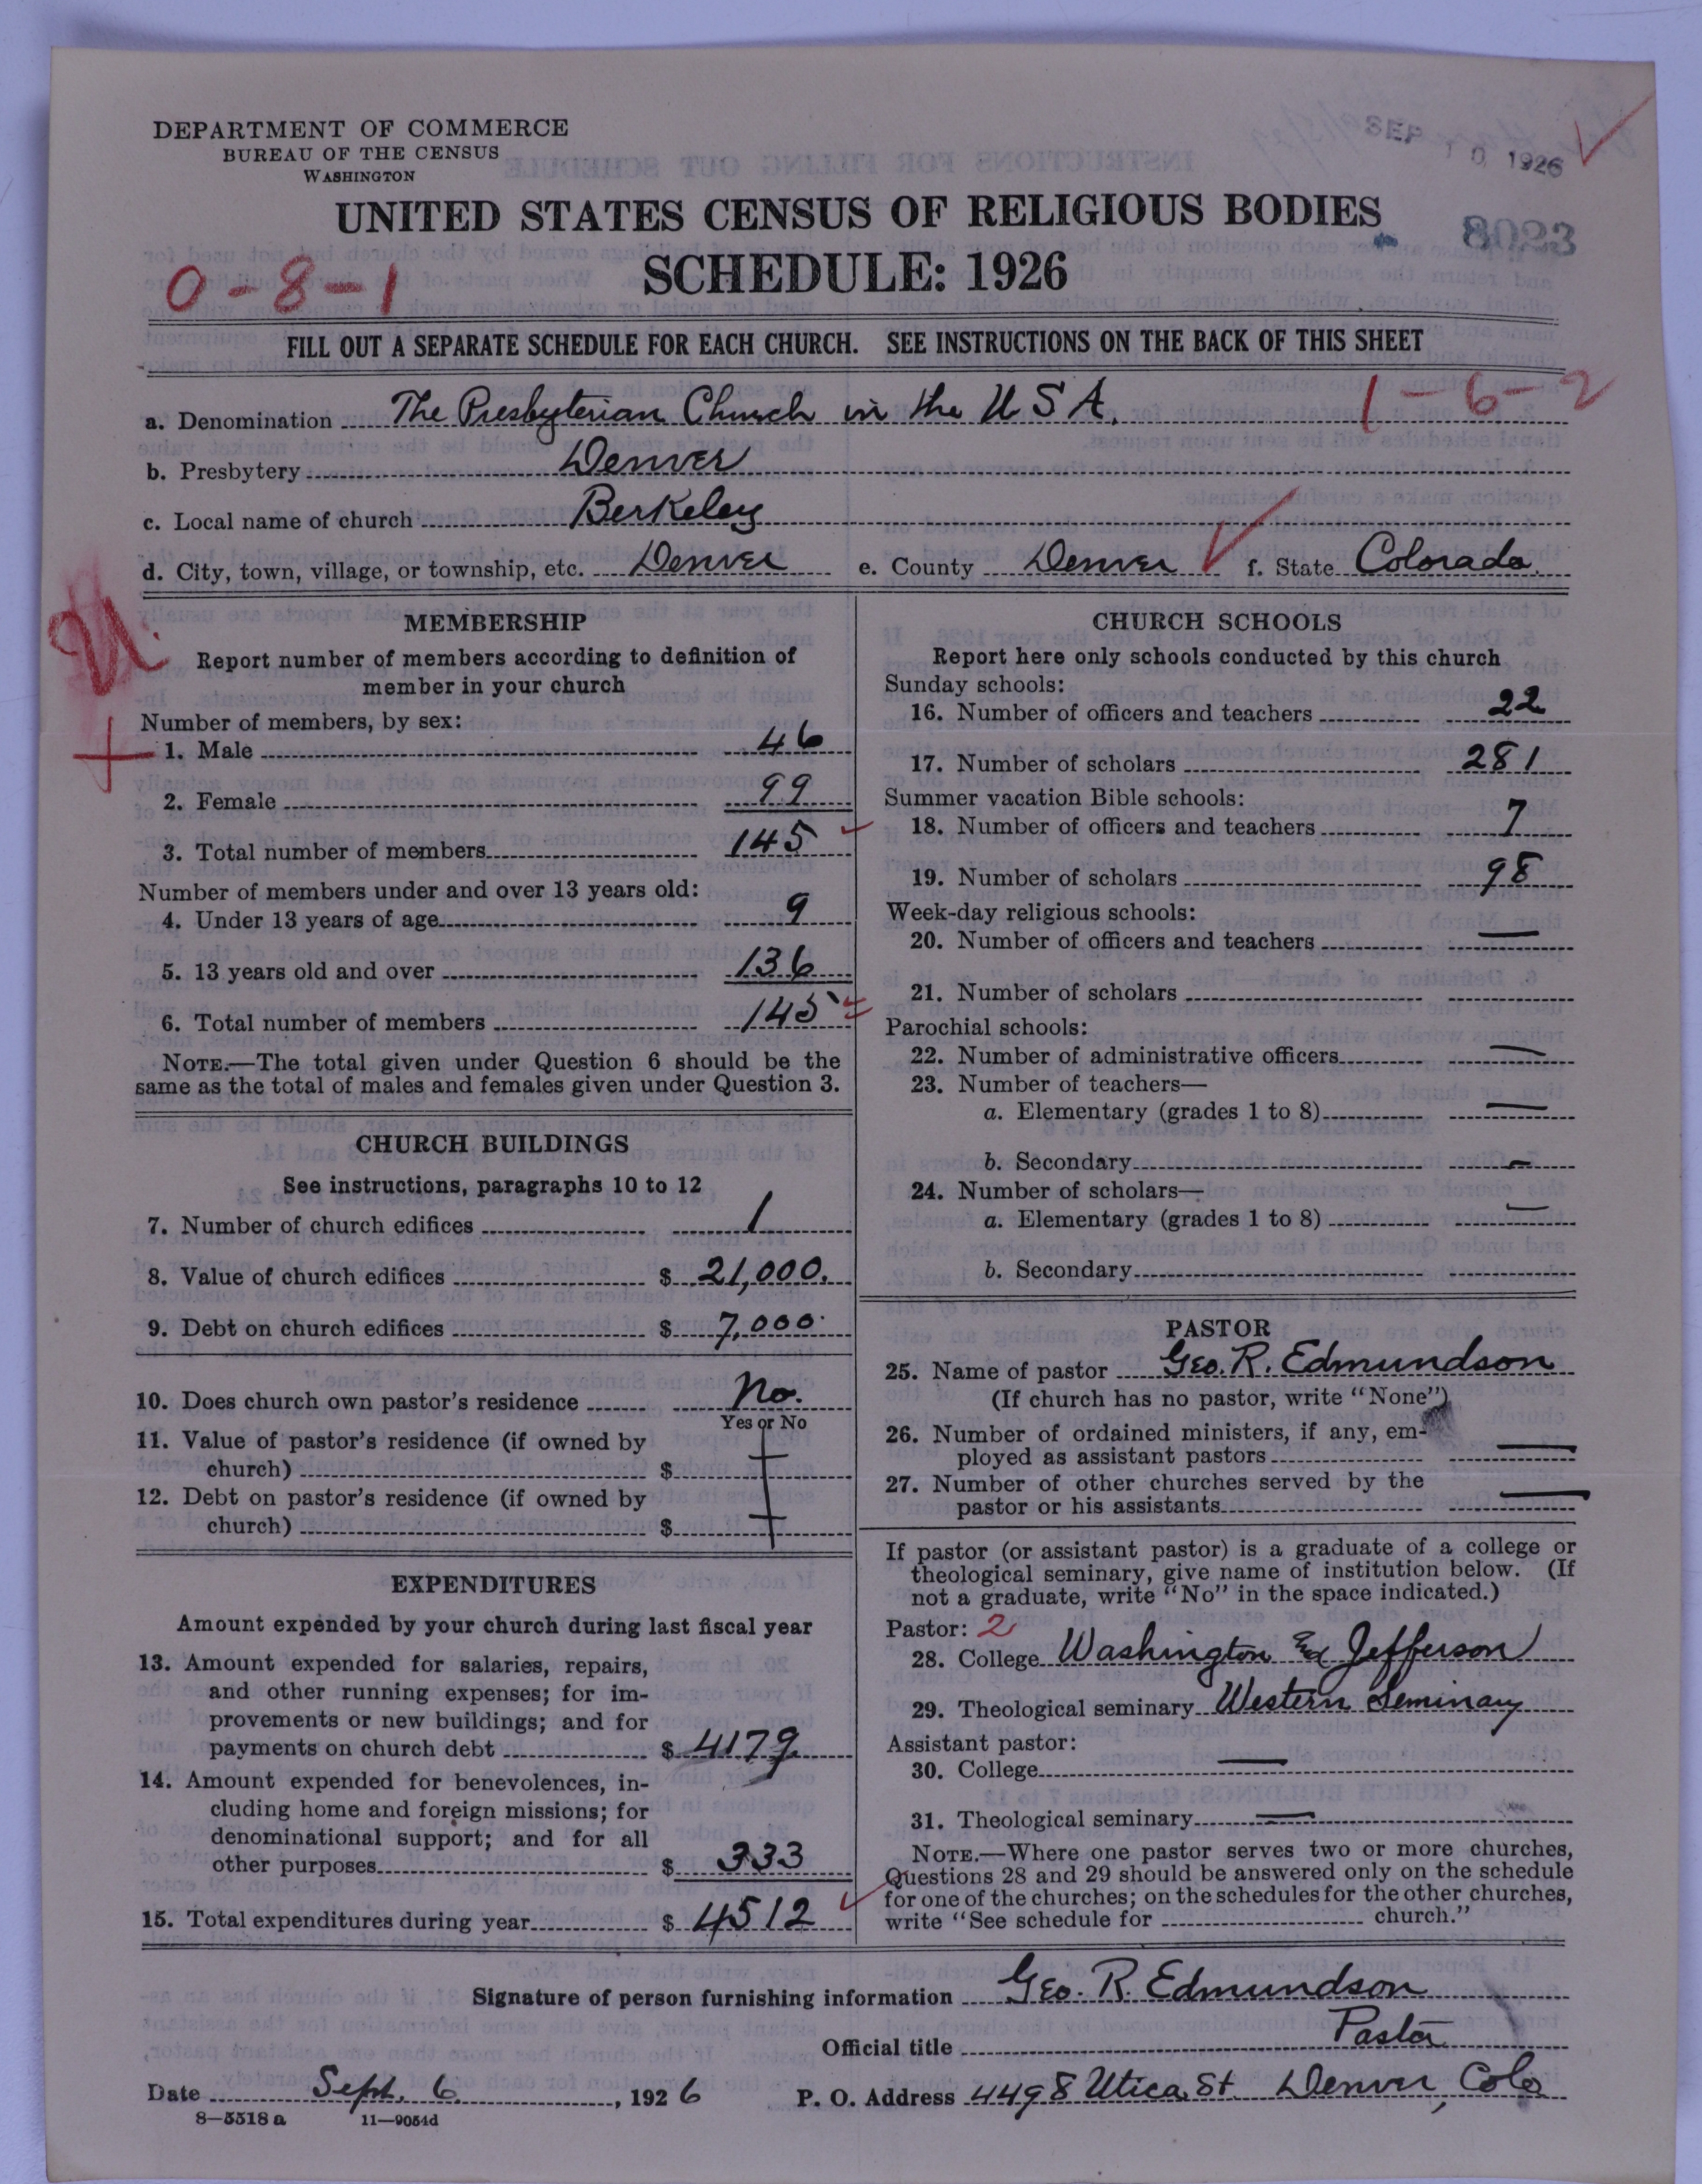 DEPARTMENT OF COMMERCE
BUREAU OF THE CENSUS
WASHINGTON
SEP 10 1926
UNITED STATES CENSUS OF RELIGIOUS BODIES
8023
SCHEDULE: 1926
0-8-1
FILL OUT A SEPARATE SCHEDULE FOR EACH CHURCH. SEE INSTRUCTIONS ON THE BACK OF THIS SHEET
1-6-2
a. Denomination The Presbyterian Church in the U S A.
b. Presbytery Denver
c. Local name of church Berkeley
d. City, town, village, or township, etc. Denver e. County Denver f. State Colorado.
MEMBERSHIP
Report number of members according to definition of
member in your church
Number of members, by sex:
1. Male 46
2. Female 99
3. Total number of members 145
Number of members under and over 13 years old:
4. Under 13 years of age 9
5. 13 years old and over 136
6. Total number of members 145
NOTE.—The total given under Question 6 should be the
same as the total of males and females given under Question 3.
CHURCH BUILDINGS
See instructions, paragraphs 10 to 12
7. Number of church edifices 1
8. Value of church edifices $ 21,000.
9. Debt on church edifices $ 7,000.
10. Does church own pastor's residence No.
Yes or No
11. Value of pastor's residence (if owned by
church) $
12. Debt on pastor's residence (if owned by
church) $
EXPENDITURES
Amount expended by your church during last fiscal year
13. Amount expended for salaries, repairs,
and other running expenses; for im-
provements or new buildings; and for
payments on church debt $ 4179
14. Amount expended for benevolences, in-
cluding home and foreign missions; for
denominational support; and for all
other purposes $ 333
15. Total expenditures during year $ 4512
CHURCH SCHOOLS
Report here only schools conducted by this church
Sunday schools:
16. Number of officers and teachers 22
17. Number of scholars 281
Summer vacation Bible schools:
18. Number of officers and teachers 7
19. Number of scholars 98
Week-day religious schools:
20. Number of officers and teachers —
21. Number of scholars
Parochial schools:
22. Number of administrative officers —
23. Number of teachers—
a. Elementary (grades 1 to 8) —
b. Secondary —
24. Number of scholars—
a. Elementary (grades 1 to 8) —
b. Secondary
PASTOR
25. Name of pastor Geo. R. Edmundson
(If church has no pastor, write "None")
26. Number of ordained ministers, if any, em-
ployed as assistant pastors —
27. Number of other churches served by the
pastor or his assistants —
If pastor (or assistant pastor) is a graduate of a college or
theological seminary, give name of institution below. (If
not a graduate, write "No" in the space indicated.)
Pastor: 2
28. College Washington and Jefferson
29. Theological seminary Western Seminary
Assistant pastor:
30. College —
31. Theological seminary —
NOTE.—Where one pastor serves two or more churches,
Questions 28 and 29 should be answered only on the schedule
for one of the churches; on the schedules for the other churches,
write "See schedule for church."
Signature of person furnishing information Geo. R. Edmundson
Official title Pastor
Date Sept. 6, 1926 P. O. Address 4498 Utica St. Denver, Colo
8—5518 a 11—9054d